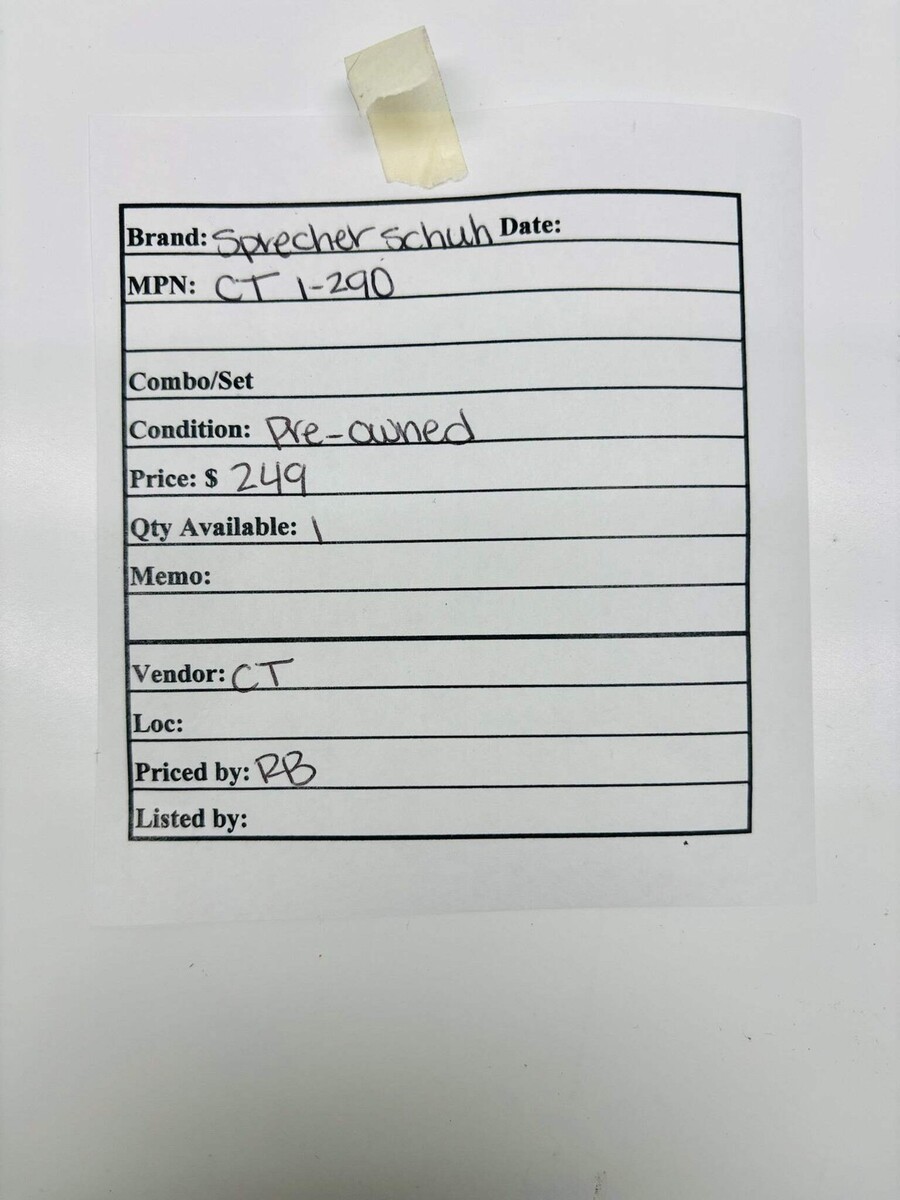 Brand: Sprecher schuh Date:
MPN: CT 1-290
Combo/Set
Condition: Pre-owned
Price: $ 249
Qty Available: 1
Memo:
Vendor: CT
Loc:
Priced by: RB
Listed by: